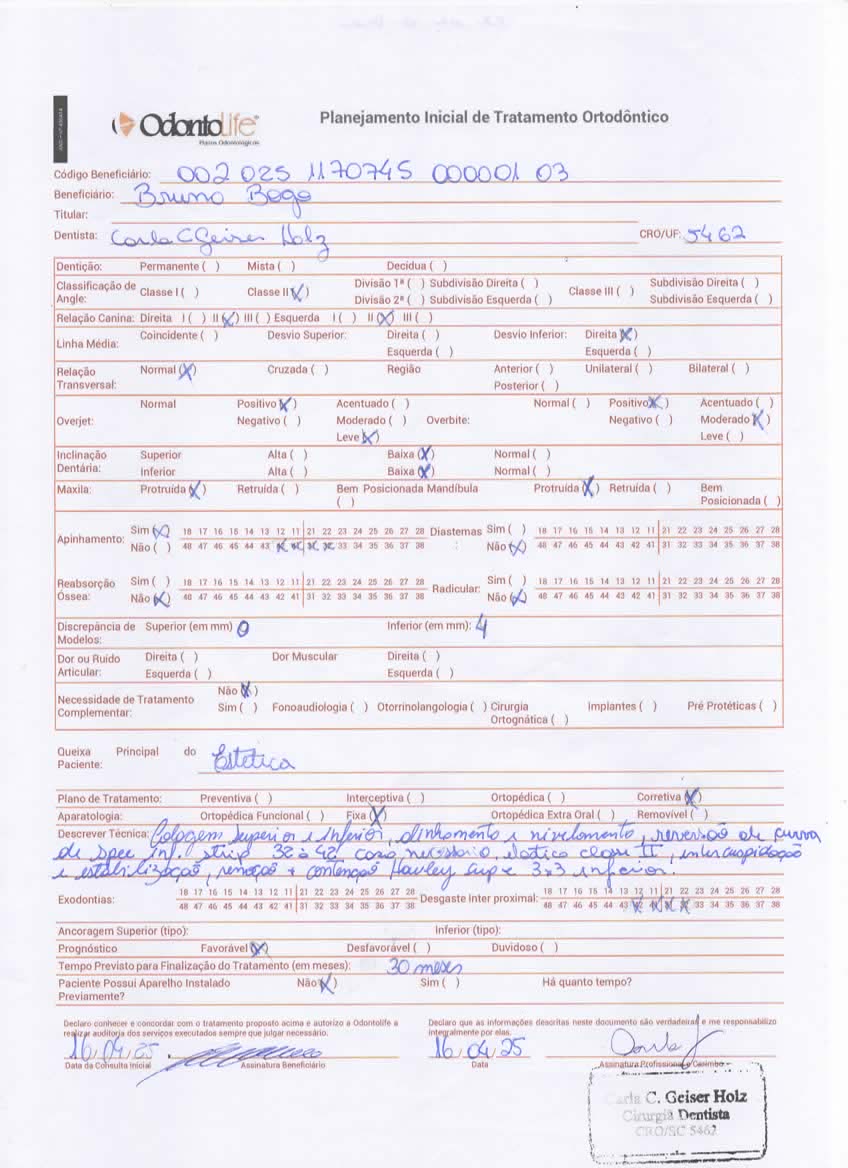 OdontoLife
Planos Odontológicos
Planejamento Inicial de Tratamento Ortodôntico
Código Beneficiário: 002 025 1170745 000001 03
Beneficiário: Bruno Bogo
Titular:
Dentista: Carla C Geiser Holz CRO/UF: 5462
Dentição: Permanente ( ) Mista ( ) Decídua ( )
Classificação de Angle: Classe I ( ) Classe II (X) Divisão 1ª ( ) Subdivisão Direita ( ) Classe III ( ) Subdivisão Direita ( )
Divisão 2ª ( ) Subdivisão Esquerda ( ) Subdivisão Esquerda ( )
Relação Canina: Direita I ( ) II (X) III ( ) Esquerda I ( ) II (X) III ( )
Linha Média: Coincidente ( ) Desvio Superior: Direita ( ) Desvio Inferior: Direita (X)
Esquerda ( ) Esquerda ( )
Relação Transversal: Normal (X) Cruzada ( ) Região Anterior ( ) Unilateral ( ) Bilateral ( )
Posterior ( )
Normal Positivo (X) Acentuado ( ) Normal ( ) Positivo (X) Acentuado ( )
Overjet: Negativo ( ) Moderado ( ) Overbite: Negativo ( ) Moderado (X)
Leve (X) Leve ( )
Inclinação Dentária: Superior Alta ( ) Baixa (X) Normal ( )
Inferior Alta ( ) Baixa (X) Normal ( )
Maxila: Protruída (X) Retruída ( ) Bem Posicionada Mandíbula Protruída (X) Retruída ( ) Bem
( ) Posicionada ( )
Apinhamento: Sim (X) 18 17 16 15 14 13 12 11 21 22 23 24 25 26 27 28 Diastemas: Sim ( ) 18 17 16 15 14 13 12 11 21 22 23 24 25 26 27 28
Não ( ) 48 47 46 45 44 43 X X X X 33 34 35 36 37 38 Não (X) 48 47 46 45 44 43 42 41 31 32 33 34 35 36 37 38
Reabsorção Óssea: Sim ( ) 18 17 16 15 14 13 12 11 21 22 23 24 25 26 27 28 Radicular: Sim ( ) 18 17 16 15 14 13 12 11 21 22 23 24 25 26 27 28
Não (X) 48 47 46 45 44 43 42 41 31 32 33 34 35 36 37 38 Não (X) 48 47 46 45 44 43 42 41 31 32 33 34 35 36 37 38
Discrepância de Modelos: Superior (em mm) 0 Inferior (em mm): 4
Dor ou Ruído Articular: Direita ( ) Dor Muscular Direita ( )
Esquerda ( ) Esquerda ( )
Necessidade de Tratamento Complementar: Não (X)
Sim ( ) Fonoaudiologia ( ) Otorrinolangologia ( ) Cirurgia Ortognática ( ) Implantes ( ) Pré Protéticas ( )
Queixa Principal do Paciente: Estética
Plano de Tratamento: Preventiva ( ) Interceptiva ( ) Ortopédica ( ) Corretiva (X)
Aparatologia: Ortopédica Funcional ( ) Fixa (X) Ortopédica Extra Oral ( ) Removível ( )
Descrever Técnica: Colagem superior e inferior, alinhamento e nivelamento, reversão de curva
de Spee inf. strip 32 à 42 caso necessário, elástico classe II, intercuspidação
e estabilização, remoção + contenção Hawley sup e 3x3 inferior.
Exodontias: 18 17 16 15 14 13 12 11 21 22 23 24 25 26 27 28 Desgaste Inter proximal: 18 17 16 15 14 13 12 11 21 22 23 24 25 26 27 28
48 47 46 45 44 43 42 41 31 32 33 34 35 36 37 38 48 47 46 45 44 43 X X X X 33 34 35 36 37 38
Ancoragem Superior (tipo): Inferior (tipo):
Prognóstico Favorável (X) Desfavorável ( ) Duvidoso ( )
Tempo Previsto para Finalização do Tratamento (em meses): 30 meses
Paciente Possui Aparelho Instalado Previamente? Não (X) Sim ( ) Há quanto tempo?
Declaro conhecer e concordar com o tratamento proposto acima e autorizo a Odontolife a
realizar auditoria dos serviços executados sempre que julgar necessário.
Declaro que as informações descritas neste documento são verdadeiras e me responsabilizo
integralmente por elas.
16/04/25 16/04/25
Data da Consulta Inicial Assinatura Beneficiário Data Assinatura Profissional e Carimbo
Carla C. Geiser Holz
Cirurgiã Dentista
CRO/SC 5462